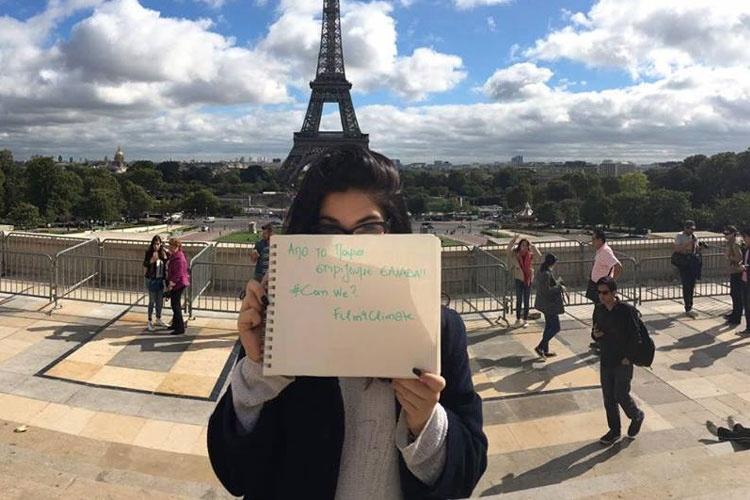 Από το Παρισι
στηρίζουμε Ελλάδα!!
#Can We?
Film4Climate